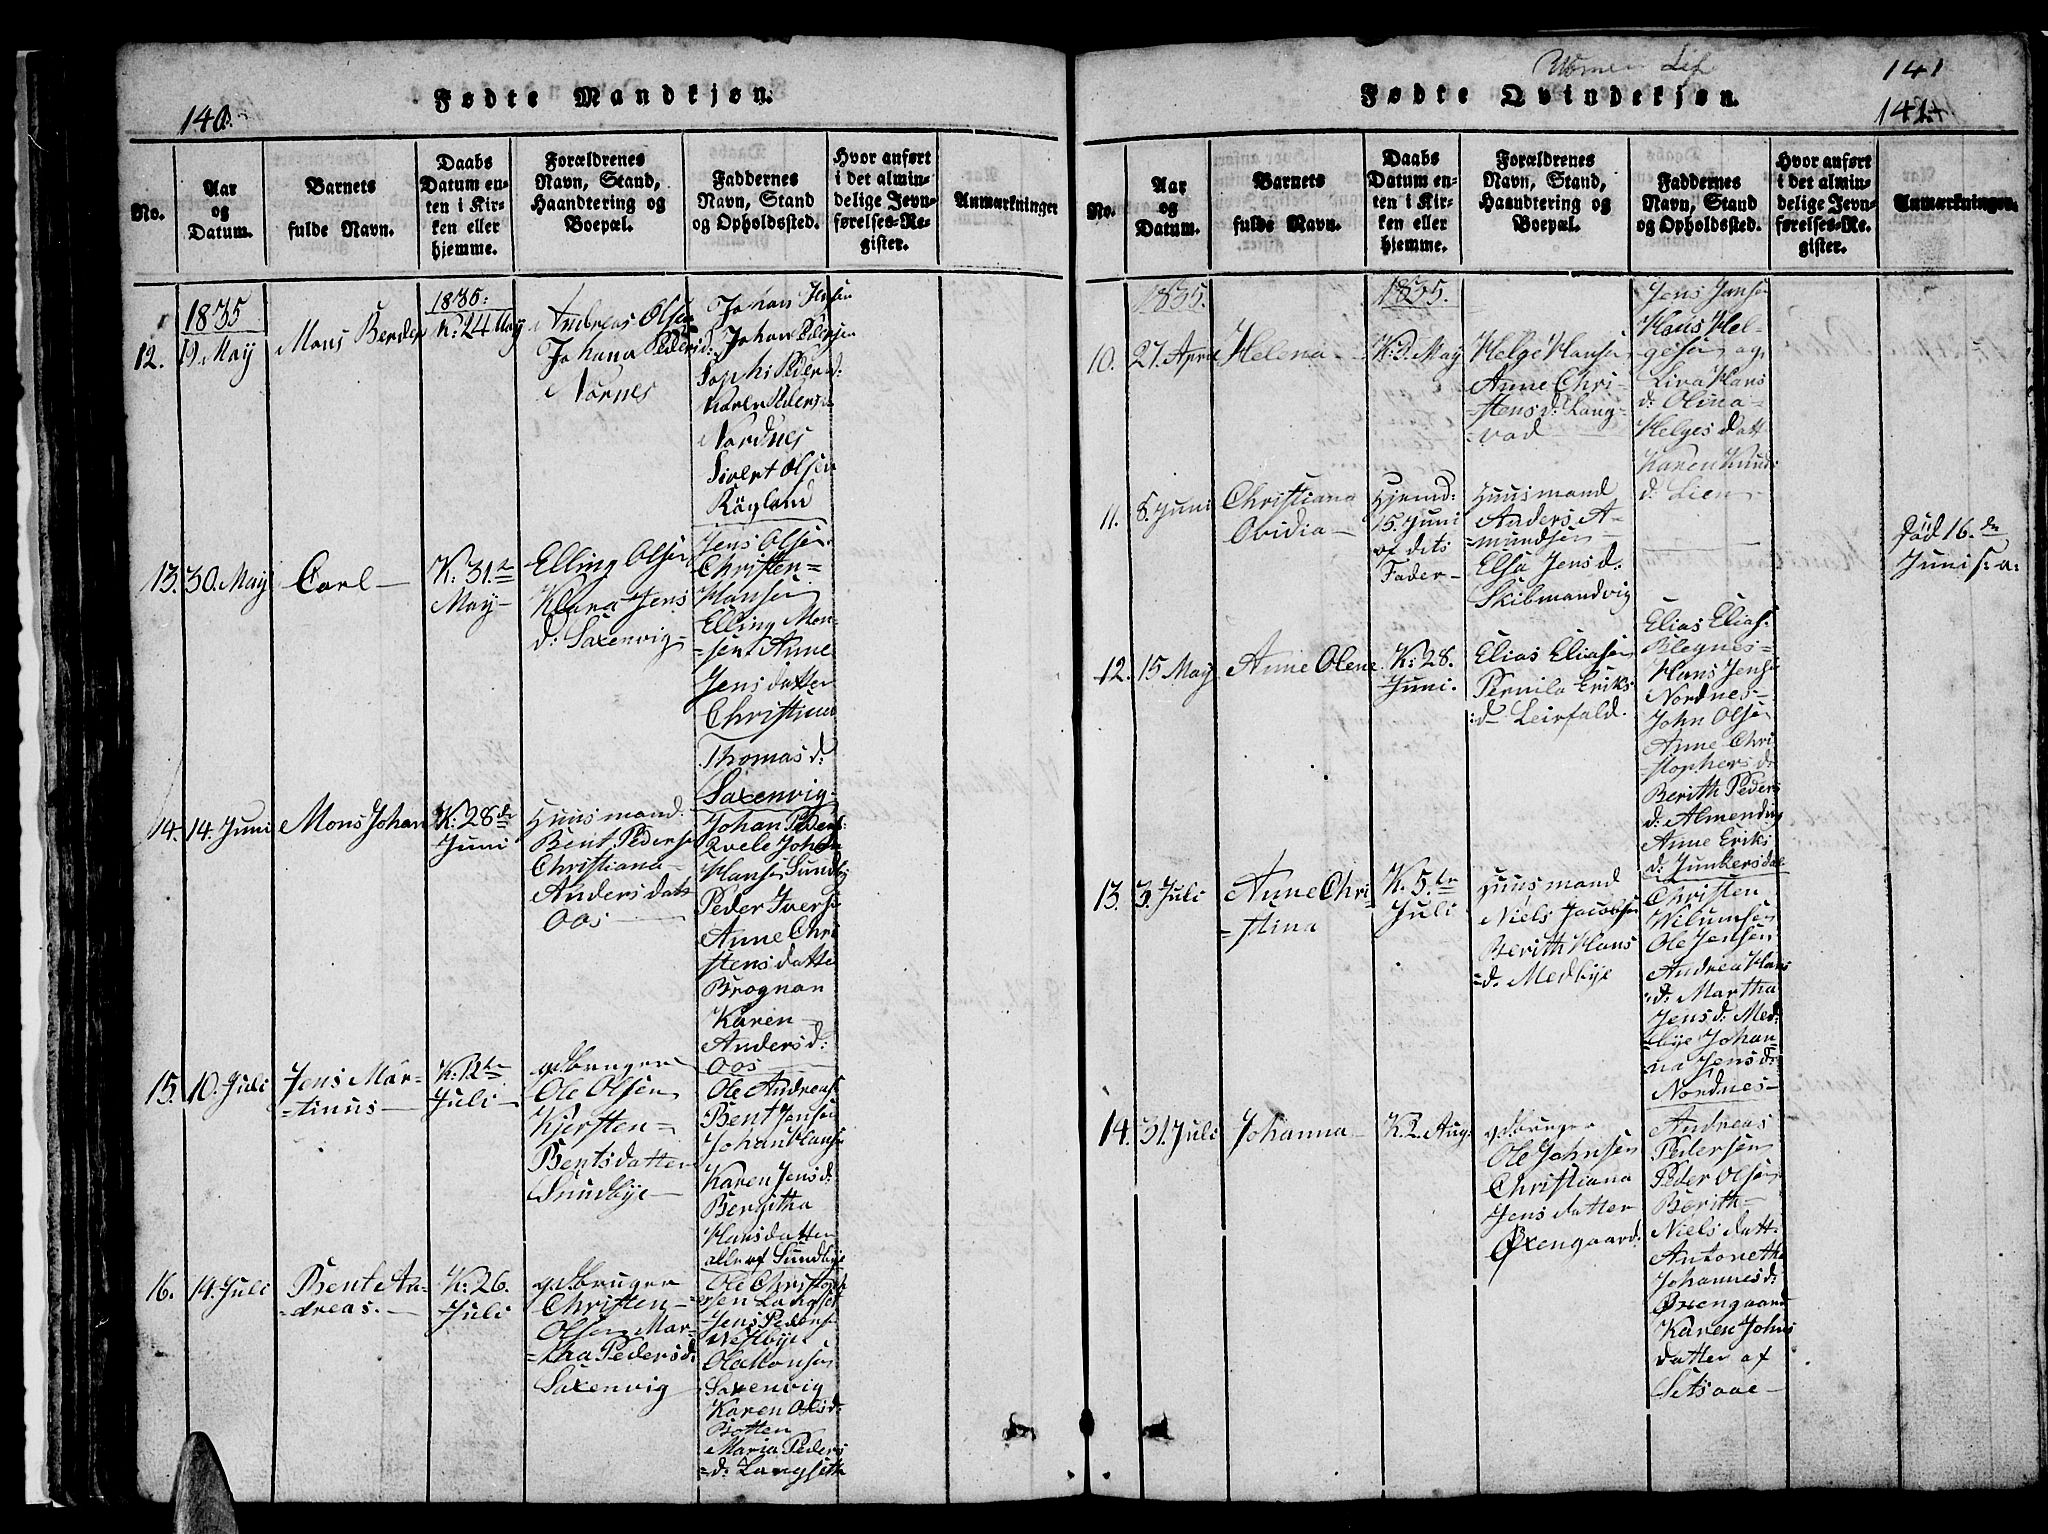 140.
Fødte Mandkjøn.
No.
Aar
og
Datum.
Barnets
fulde Navn.
Daabs
Datum en-
ten i Kir-
ken eller
hjemme.
Forældrenes
Navn, Stand,
Haandtering og
Boepæl.
Faddernes
Navn, Stand
og Opholdssted.
Hvor anført
i det almin-
delige Jevn-
førelses-Re-
gister.
Anmærkninger
1835
12. 19 May
Mons
1835:
K: 24 May
Andreas Olsen
Johana Peders
Nórnes
Johan
d: Johan Pedersen
Sophi Peders d:
Karen Peders d
Nordnes
Sivert Olsen
Røgland
13. 30. May
Carl
K: 31.
May
Elling Olsen
Klara Jens
d: Saxenvig
Jens Olsen
Christen
Hansen
Elling Mon-
=sen Anne
Jensdatter
Christiana
Thomas d:
Saxenvig
14. 14. Juni
Mons Johan
K: 28de
Juni
Huusmand
Bent Pedersen
Christiana
Andersdatt
Oos
Johan Peders:
Qvele Johan
Hansen Sundby
Peder Iversen
Anne Chri
stensdatte
Brognan
Karen
Anders d:
Oos
15. 10. Juli
Jens Mar-
=tinus
K: 12te
Juli
gdbruger
Ole Olsen
Kjersten
Bentsdatter
Sundbye
Ole Andreas
Bent Jensen
Johan Hansen
Karen Jens d:
Bergitha
Hansdatter
alle af Sundbye
16. 14. Juli
Bent An-
=dreas.
K: 26.
Juli
gdbruger
Christen
Olsen Mar-
Peders d:
Saxenvig
Ole Christoph
ersen Langset
Jens Peders
Westbye
Ole Monsen
Saxenvig
Karen Ols d:
Botten
Maria Peders
=d: Langseth
Fødte Qvindekjøn.
141
141
No.
Aar
og
Datum.
Barnets
fulde Navn.
Daabs
Datum en-
ten i Kir-
ken eller
hjemme.
Forældrenes
Navn, Stand,
Haandtering og
Boepæl.
Faddernes
Navn, Stand
og Opholdssted.
Hvor anført
i det almin-
delige Jevn-
førelses-Re-
gister.
Anmærkninger.
1835.
10. 27. April
Helena
1835.
May
Helge Hansen
Anne Chri-
=stens d: Lang-
=vad
Jens Jansen
Hans Hel-
gesen og
Liva Hans
d: Olina
Helges Datt
Karen Knud
d: Lien
11. 8. Juni
Christiana
Ovidia
Hjemd:
15. Juni
af dets
Fader
Huusmand
Anders A-
=mundsen
Elsa Jens d.
Skibmandvig
Fød 16. de
Juni s: a:
12. 15 May
Anne Olene
K: 28.
Juni.
Elias Eliasen
Pernila Eriks
:d Leirfald.
Elias Elias:
Blegnes
Hans Jensen
Nordnes
John Olsen
Anne Chri
=stophers d:
Berith Peders
d: Almending
Anne Eriks
d: Junkersdal
13. 3. Juli
Anne Chri-
=stina
K. 5. te
Juli
Huusmand
Niels Jacobsen
Berith Hans
=d. Medbye
Christen
Wilumsen
Ole Jensen
Andrea Hans
:d: Martha
Jens d: Med-
=bye Johan-
na Jens d:
Nordnes
14. 31. Juli
Johanna
K. 2. Aug.
gdbruger
Ole Johnsen
Christiana
Jensdatter
Øxengaard
Andreas
Pedersen
Peder Olsen
Berith
Niels datt:
Antonetha
Johannes d:
Øxengaard
Karen Johns
datter af
Setsaae